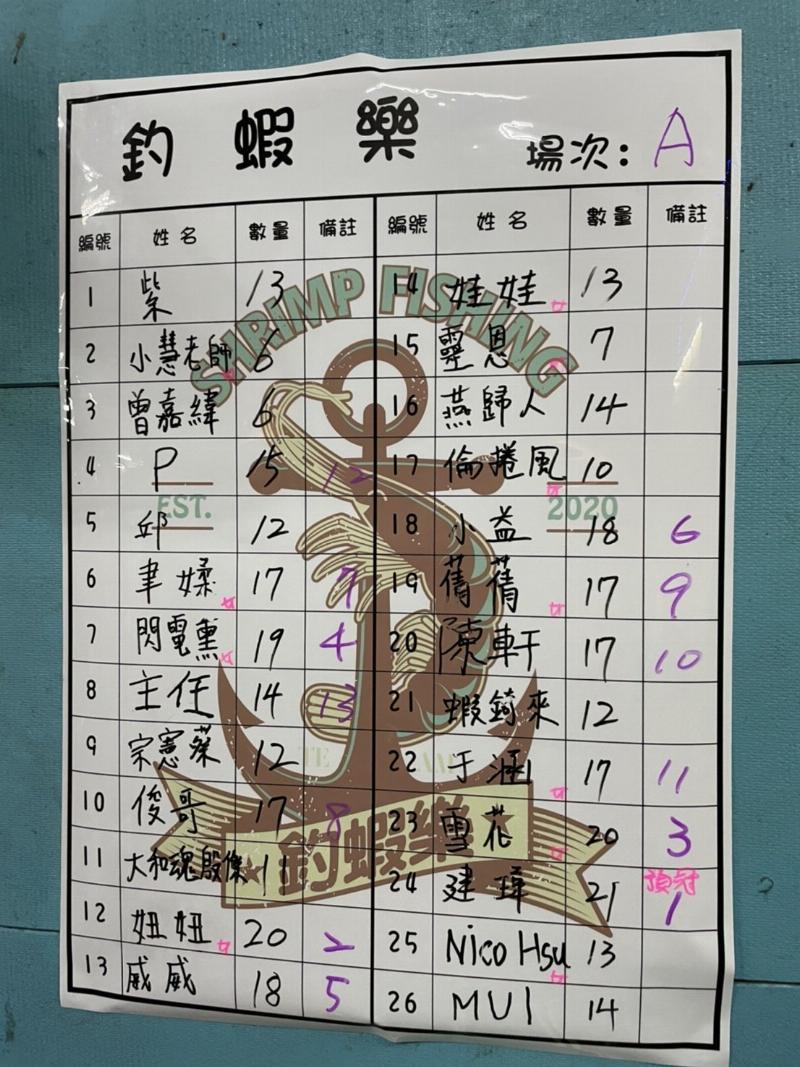 釣蝦樂 場次: A
編號 姓名 數量 備註 編號 姓名 數量 備註
1 紫 13 14 娃娃 女 13
2 小慧老師 女 6 15 靈恩 女 7
3 曾嘉緯 6 16 燕歸人 14
4 P 15 12 17 倫捲風 女 10
5 邱 12 18 小益 18 6
6 聿媃 女 17 7 19 蒨蒨 女 17 9
7 閃電熏 女 19 4 20 陳軒 17 10
8 主任 14 13 21 蝦錡來 12
9 宗憲葉 12 22 于涵 女 17 11
10 俊哥 17 8 23 雪花 女 20 3
11 大和魂殷傑 11 24 建瑋 21 預冠 1
12 妞妞 女 20 2 25 Nico Hsu 女 13
13 威威 18 5 26 MUI 14
SHRIMP FISHING
EST. 2020
釣蝦樂